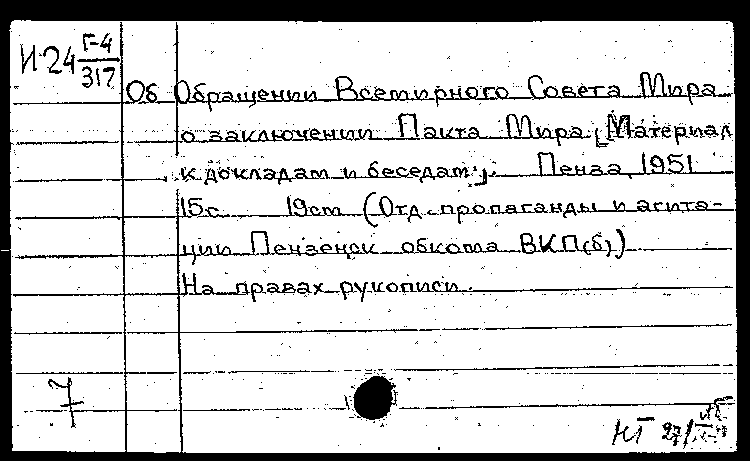 И-24 Г-4
317
Об Обращении Всемирного Совета Мира
о заключении Пакта Мира [Материал
к докладам и беседам]. Пенза, 1951
15с. 19cm (Отд. пропаганды и агита-
ции Пензенск обкома ВКП(б))
На правах рукописи.
7
НГ 27/